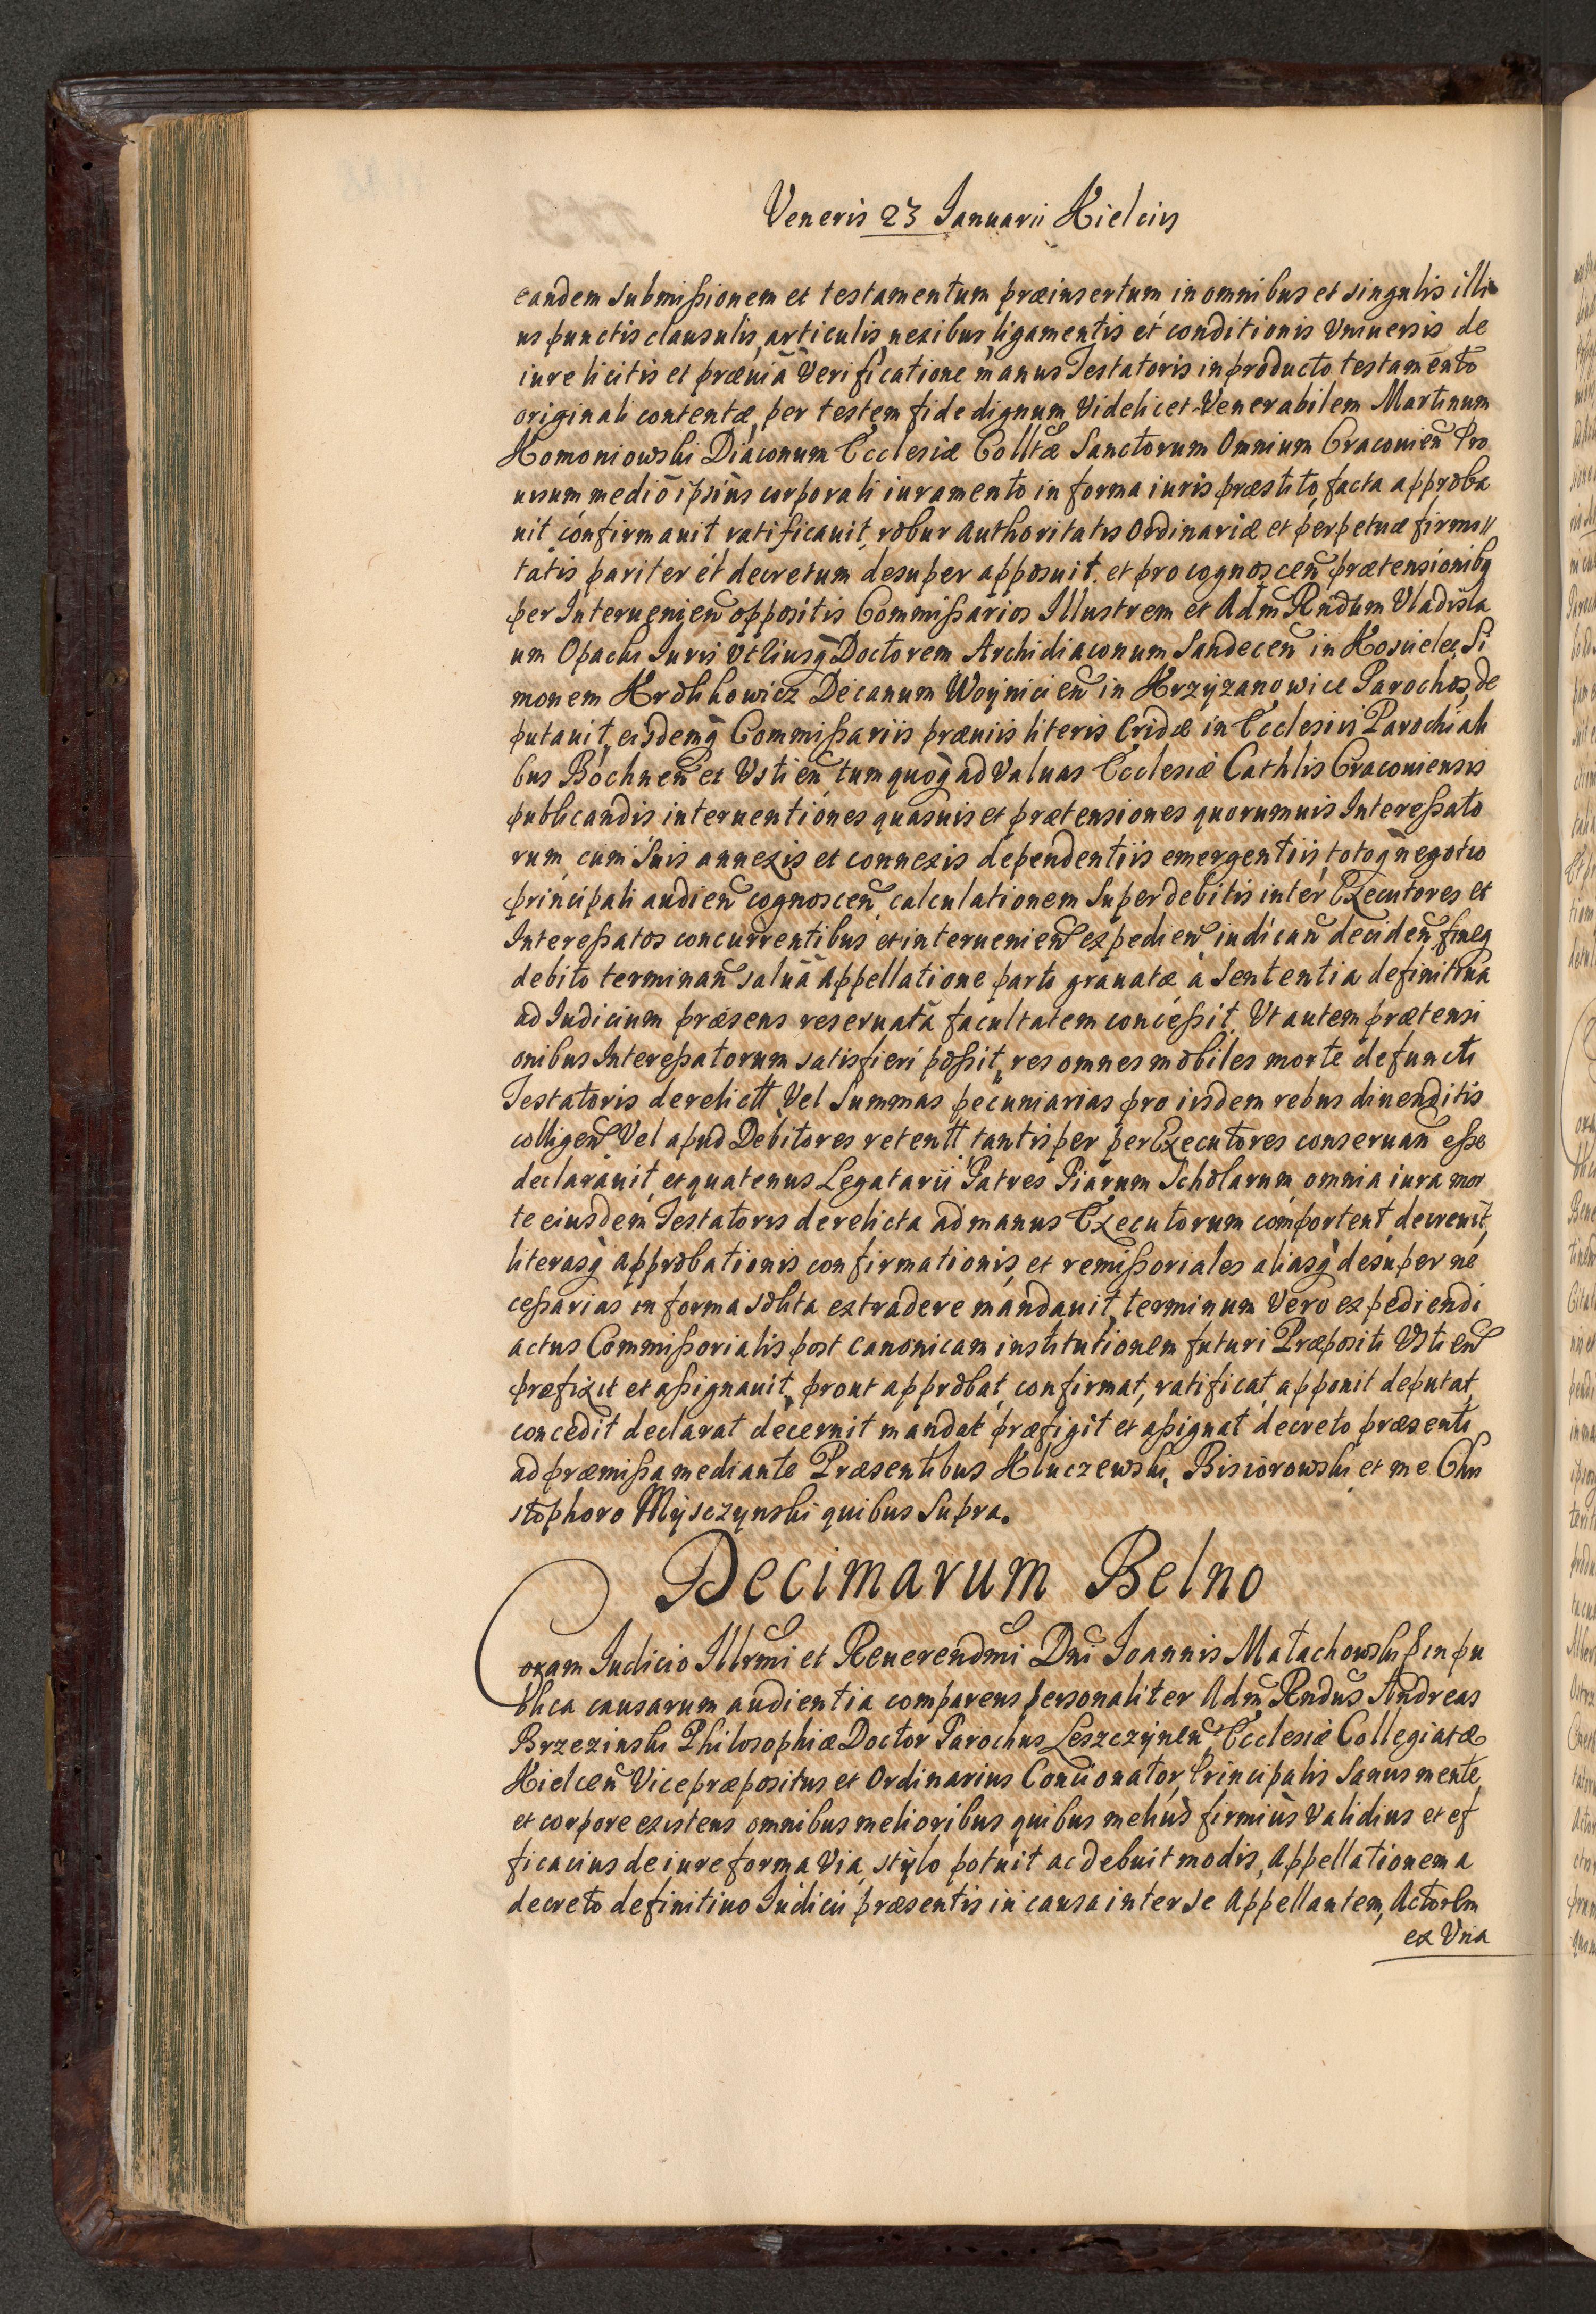 Veneris 23 Ianuarii Kielciis
eandem submißionem et testamentum præinsertum, in omnibus et singulis illi
us punctis clausulis, articulis, nexibus, ligamentis et conditionis Vniuersis de
iure licitis et præuiâ Verificatione manus Testatoris in producto testamento
originali contentæ, per testem fide dignum Videlicet Venerabilem Martinum
Komoniowski Diaconum Ecclesiæ Colltæ Sanctorum Omnium Cracouień Pro
ursum medio ipsius corporali iuramento in forma iuris præstito, facta approba
uit confirmauit ratificauit, robur Authoritatis Ordinariæ et perpetuæ firmi//
tatis pariter et decretum desuper apposuit. et pro cognosceń prætensionibq
per Interuenień oppositis Commißarios Illustrem et Adm Rndum Vladisla
um Opacki Iuris Vtliusq Doctorem Archidiaconum Sandeceń in Kosuielec, Si
monem Krolikowicz Decanum Woynicień in Krzyżanowice Parochos, de
putauit, eisdemq Commißariis præuiis literis Cridæ in Ecclesiis Parochiali
bus Bochneń et Vstień, tum quoq ad Valuas Ecclesiæ Cathlis Cracouiensis
publicandis interuentiones quasuis et prætensiones quorumuis Intereßato
rum, cum suis annexis et connexis dependentiis emergentiis, totoq negotio
principali audień cognosceń, calculationem super debitis inter Executores et
Intereßatos concurrentibus et interuenień expedień, iudicań decideń, fineq
debito terminań saluâ Appellatione parti grauatæ à Sententia definitiua
ad Iudicium præsens reseruatâ facultatem conceßit. Vt autem prætensi
onibus Intereßatorum satisfieri poßit, res omnes mobiles morte defuncti
Testatoris derelictt Vel Summas pecuniarias pro iisdem rebus diuenditis
colligeń Vel apud Debitores retentt, tantisper per Executores conseruań eße
declarauit, et quatenus Legatarii Patres Piarum Scholarum, omnia iura mor
te eiusdem Testatoris derelicta ad manus Executorum comportent, decreuit,
literasq approbationis confirmationis, et remißoriales aliasq desuper ne
ceßarias in forma solita extradere mandauit, terminum Vero expediendi
actus Commißorialis post canonicam institutionem futuri Præpositi Vstień
præfixit et aßignauit, prout approbat, confirmat, ratificat, apponit deputat,
concedit declarat decernit mandat præfigit et aßignat decreto præsenti
ad præmißa mediante Præsentibus Kluczewski, Bisiorowski et me Chri
stophoro Mysczynski quibus supra.
Decimarum Belno
Coram Iudicio Illrmi et Reuerendmi Dni Ioannis Małachowski in pu
blica causarum audientia comparens personaliter Adm Rndus Andreas
Brzezinski Philosophiæ Doctor Parochus Leszczyneń Ecclesiæ Collegiatæ
Kielceń Vicepræpositus et Ordinarius Concionator, Principalis Sanus mente,
et corpore existens omnibus melioribus quibus meliùs firmiùs Validius et ef
ficacius de iure forma Via, stylo potuit ac debuit modis, Appellationem a
decreto definitiuo Iudicii præsentis in causa inter se Appellantem, Actorem
ex Vna